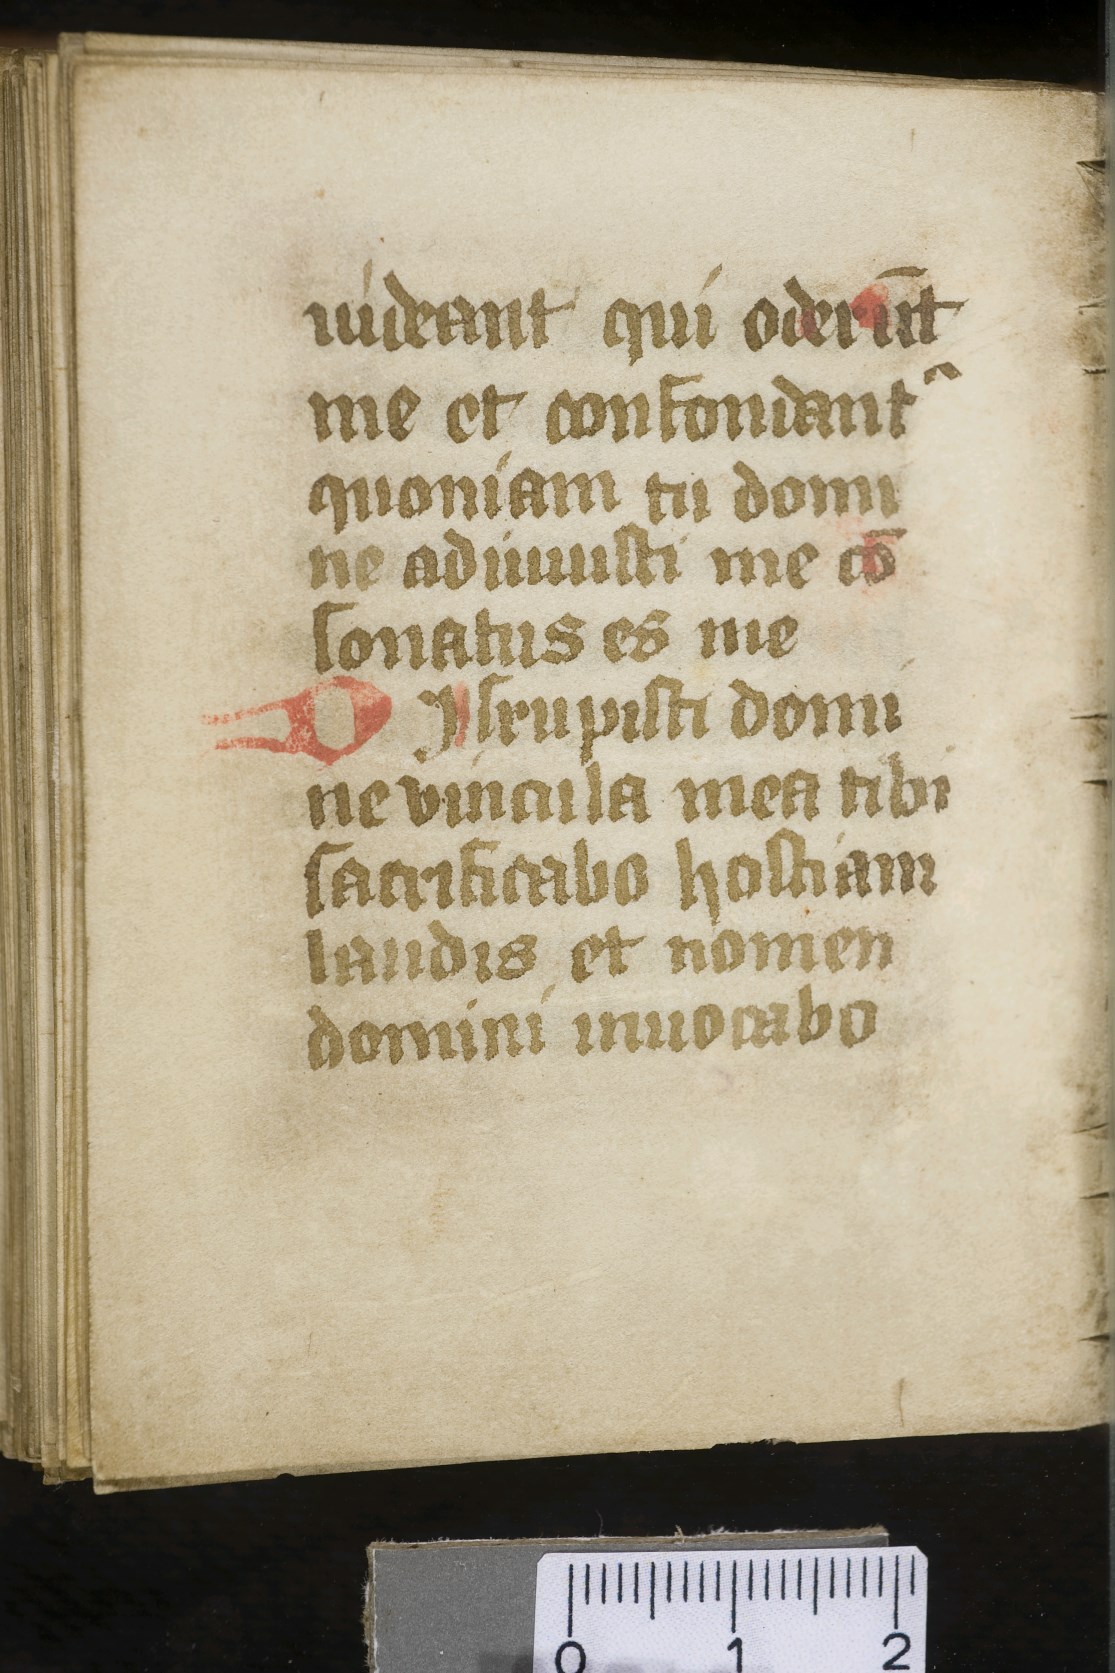 uideant qui oderūt
me et confondant᷑
quoniam tu domi
ne adiuuisti me cō
sonatus es me
D Isrupisti domi
ne vincula mea tibi
sacrificabo hostiam
laudis et nomen
domini inuocabo
0 1 2